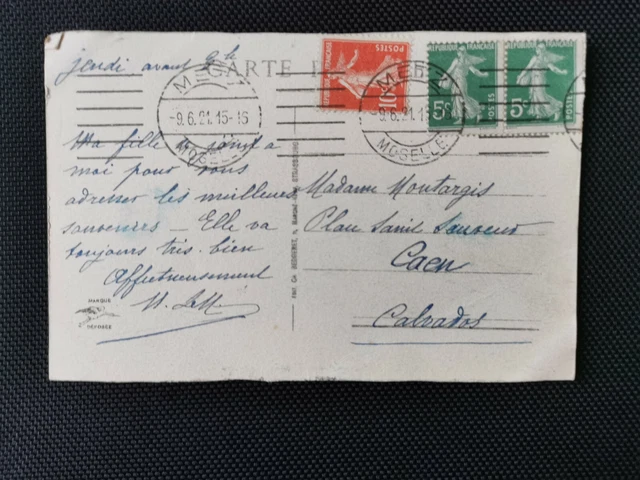 jeudi avant 2h
CARTE
METZ
9.6.21.15-16
MOSELLE
POSTES
RÉPUBLIQUE FRANÇAISE
10
METZ
9.6.21.15
MOSELLE
RÉPUBLIQUE FRANÇAISE
5c
POSTES
RÉPUBLIQUE FRANÇAISE
5c
POSTES
Ma fille se joint à
moi pour vous
adresser les meilleurs
souvenirs — Elle va
toujours très bien
Affectueusement
MARQUE
DÉPOSÉE
Madame Montargis
Place Saint Sauveur
Caen
Calvados